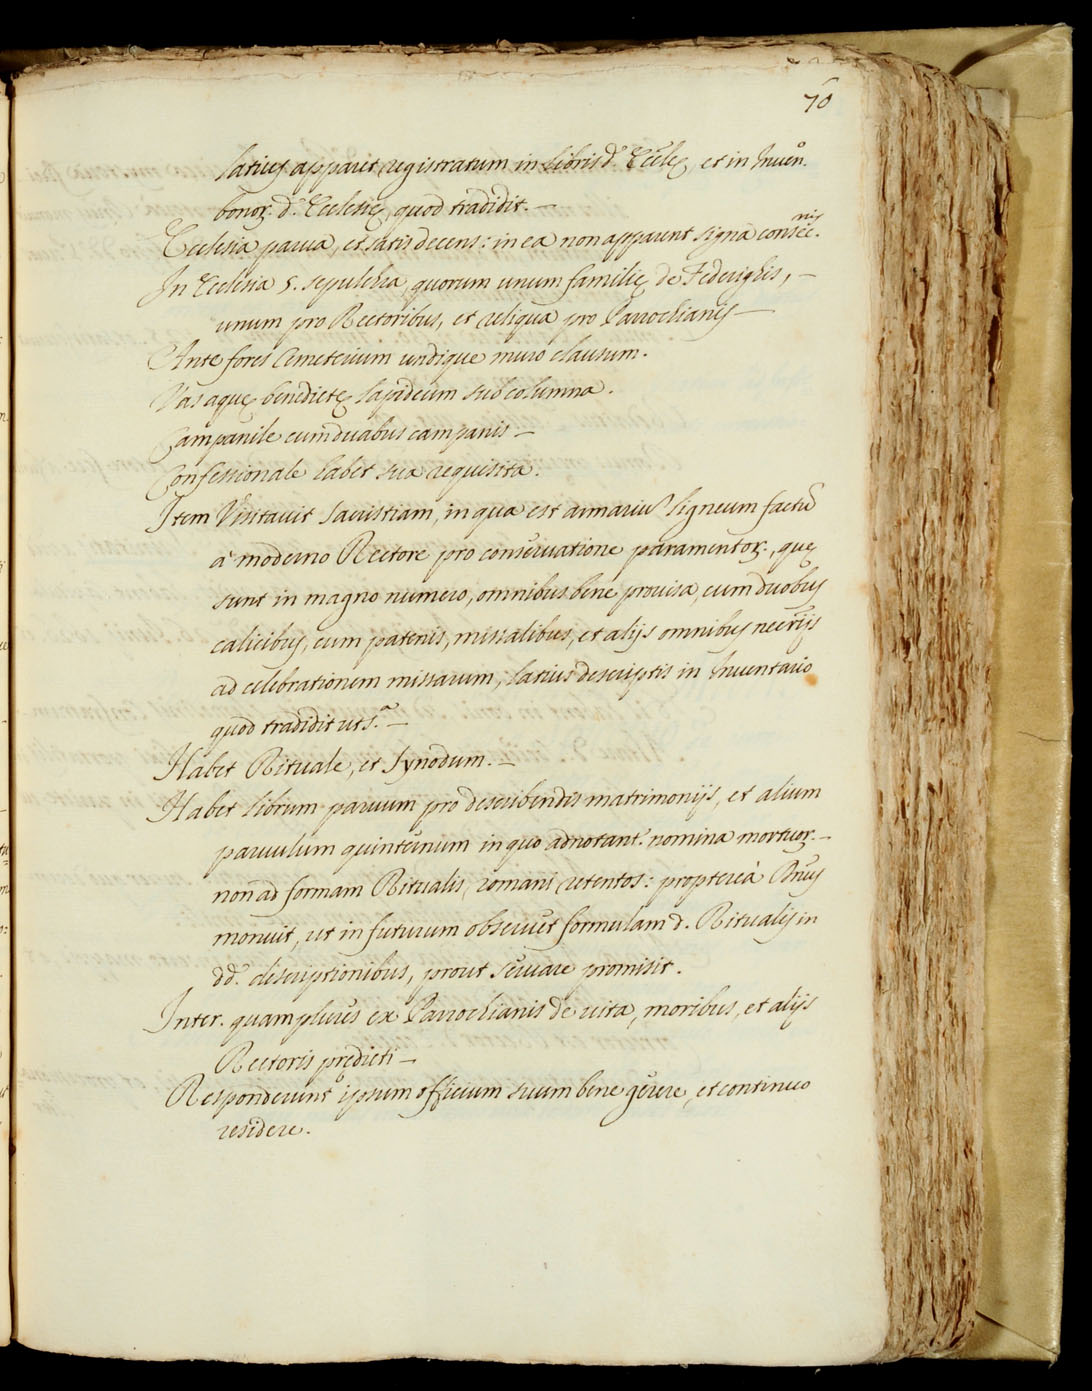 70
latius apparet registratum in libris d.ᵉ Ecclę, et in Inuen.
bonoꝝ. d.ᵉ Ecclesię, quod tradidit. —
Ecclesia parua, et satis decens: in ea non apparent signa consec.nis
In Ecclesia 5. sepulchra, quorum unum familię de Federighis, —
unum pro Rectoribus, et reliqua pro Parrochianis —
Ante fores Cimeterium undique muro clausum.
Vas aquę benedictę lapideum sub columna.
Campanile cum duabus campanis —
Confessionale habet sua requisita.
Item Visitauit Sacristiam, in qua est armariũ ligneum factũ
à moderno Rectore pro conseruatione paramentoꝝ., quę
sunt in magno numero, omnibus bene prouisa, cum duobus
calicibus, cum patenis, missalibus, et alijs omnibus necrijs
ad celebrationem missarum, latius descriptis in Inuentario
quod tradidit ut s.ª —
Habet Rituale, et Synodum. —
Habet librum paruum pro describendis matrimonijs, et alium
paruulum quinternum in quo adnotant. nomina mortuoꝝ. —
non ad formam Ritualis romani retentos: propterea Dnus
monuit, ut in futurum obseruet formulam d. Ritualis in
dd. discriptionibus, prout seruare promisit.
Inter. quamplures ex Parrochianis de uita, moribus, et alijs
Rectoris prędicti —
Responderunt ipsum officium suum bene gerere, et continuo
residere.